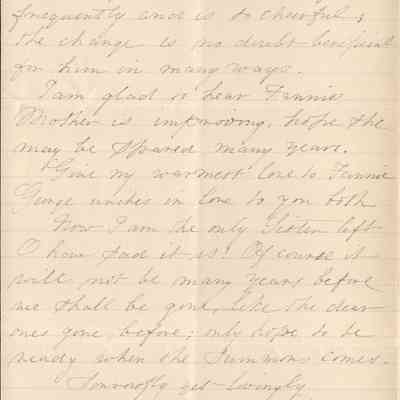 frequently and is so cheerful;
the change is no doubt beneficial
for him in many ways.
I am glad to hear Fannie's
Mother is improving, hope she
may be spared many years.
Give my warmest love to Fannie
George unites in love to you both
Now I am the only Sister left
O how sad it is! Of course it
will not be many years before
we shall be gone, like the dear
ones gone before; only hope to be
ready when the Summons comes.
yet lovingly